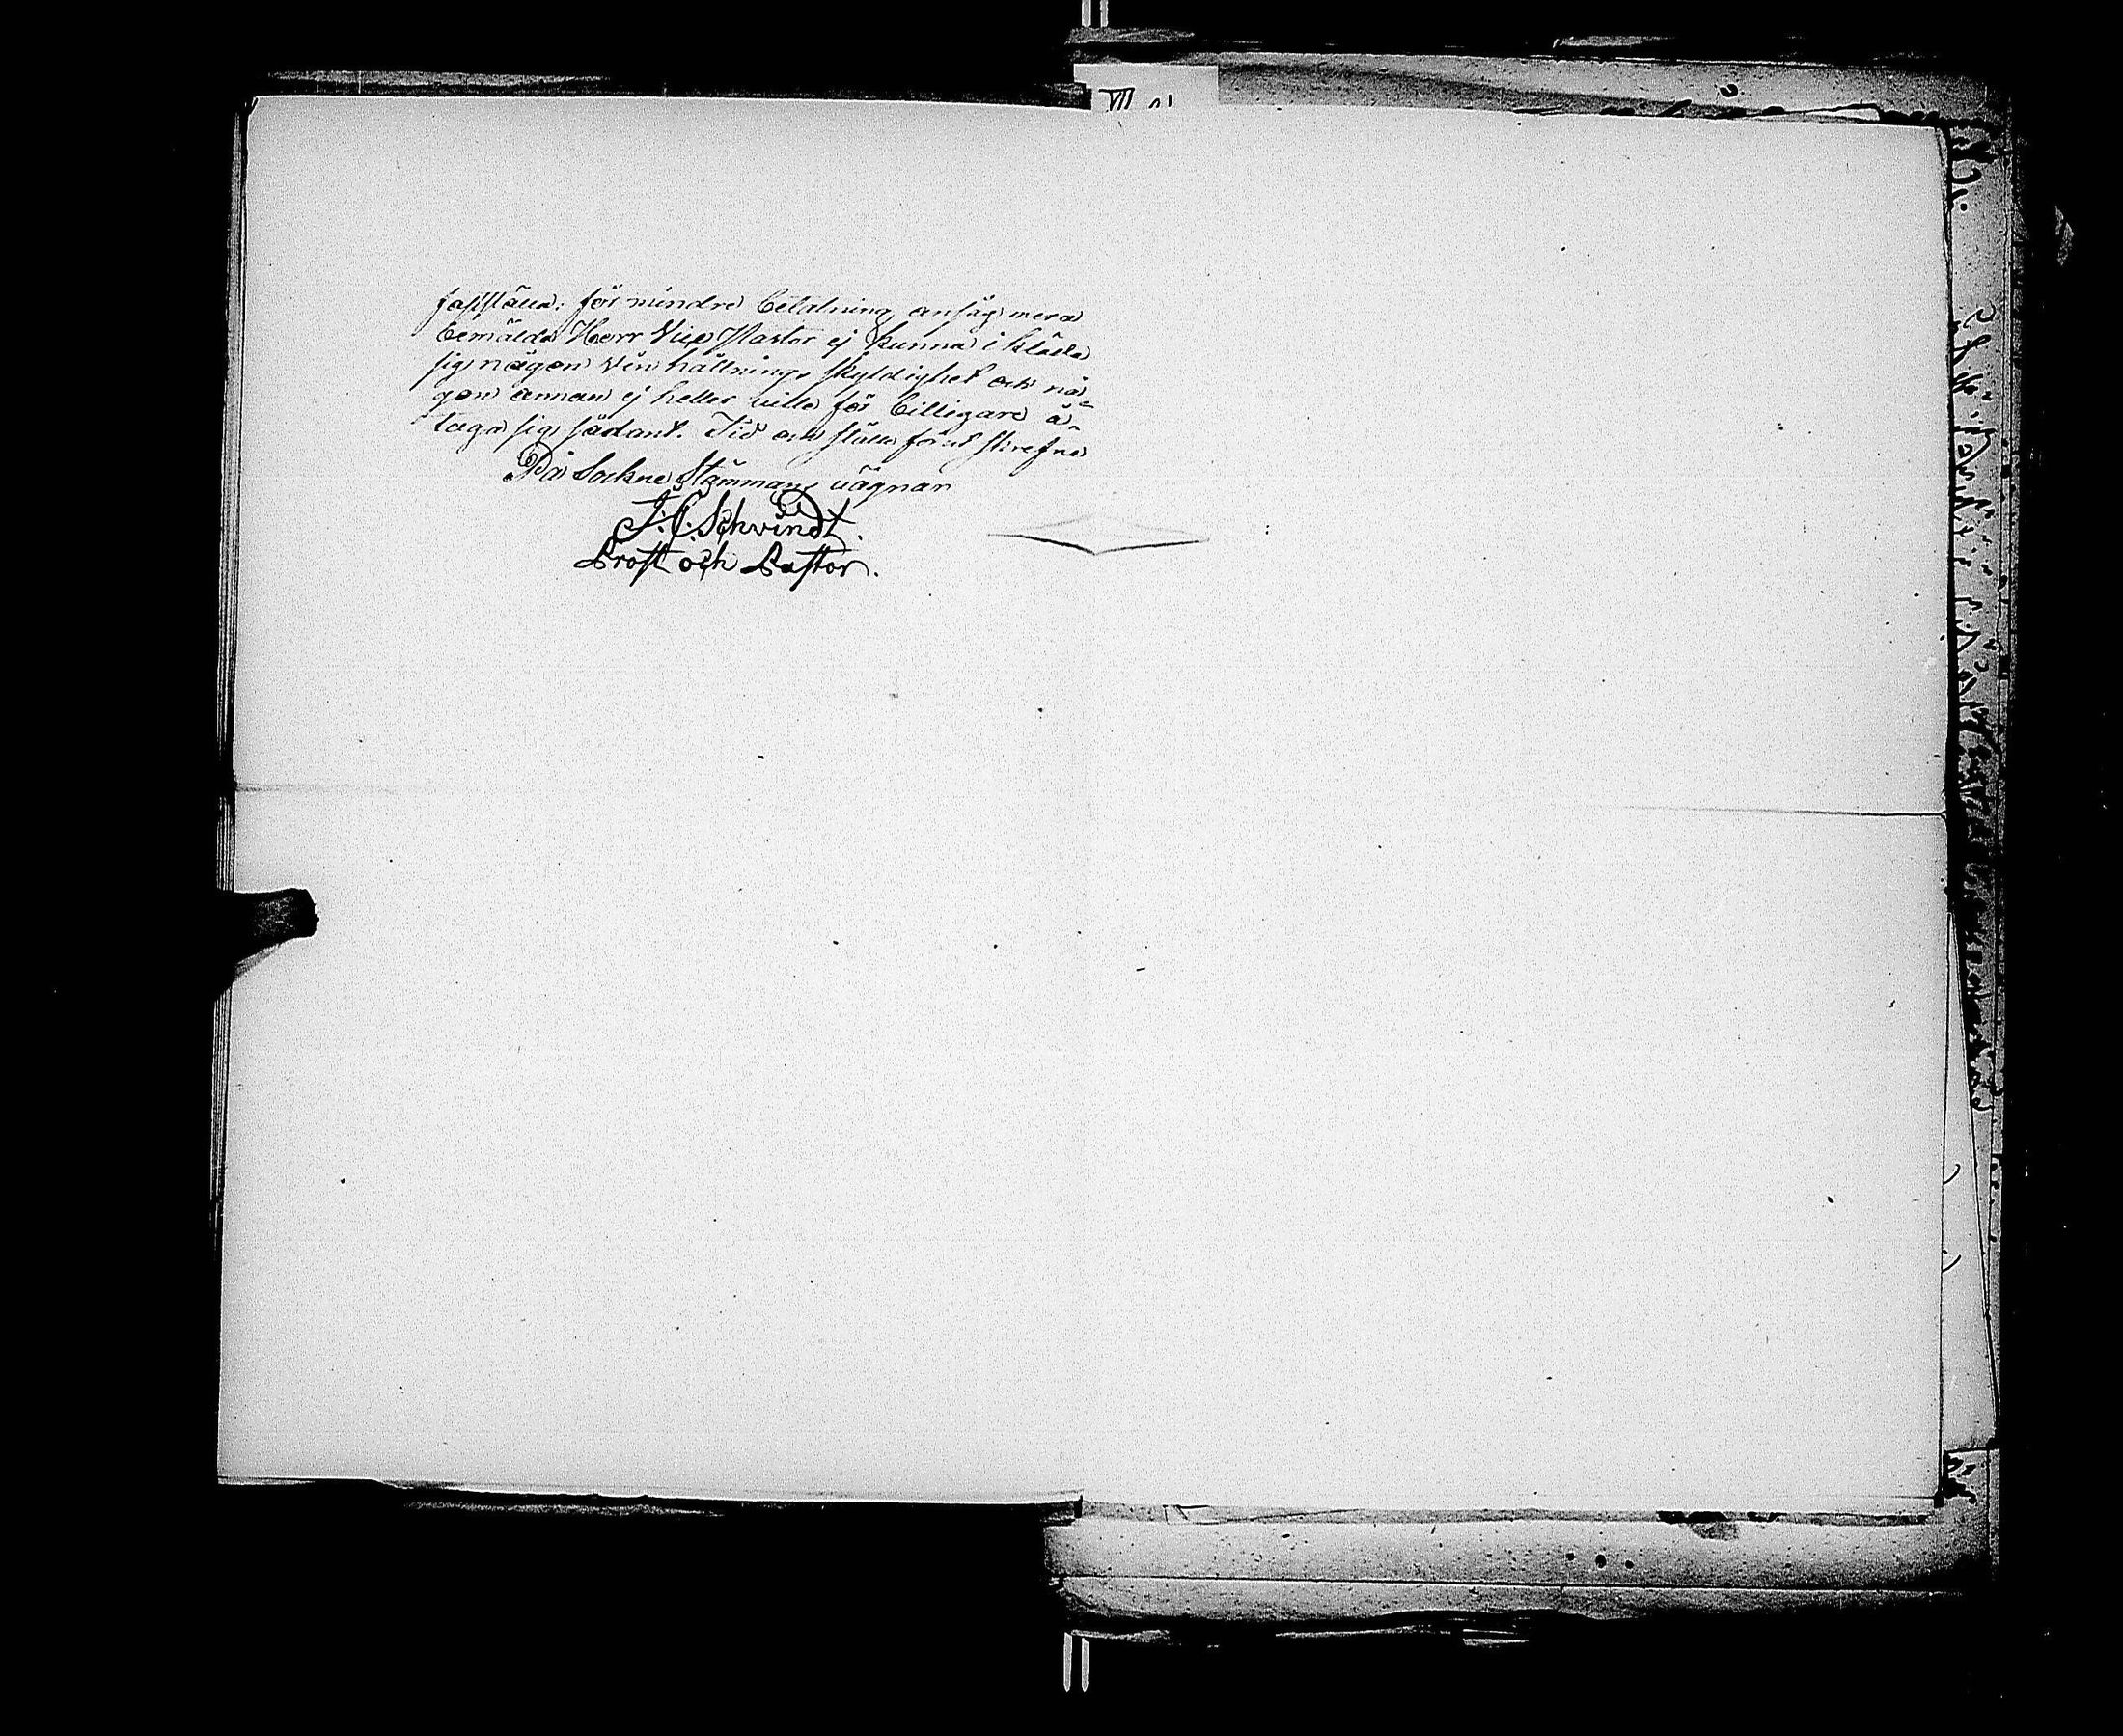 fastställa: för mindre betalning ansåg mera
bemälde Herr Vice Pastor ej kunna ikläda
sig någon Vinhållnings skyldighet och nå-
gon annan ej heller ville för billigare å-
taga sig sådant. Tid och ställe förut skrefne
På Sockne Stämmans vägnar
J. C. Schvindt.
Prost och Pastor.
VII